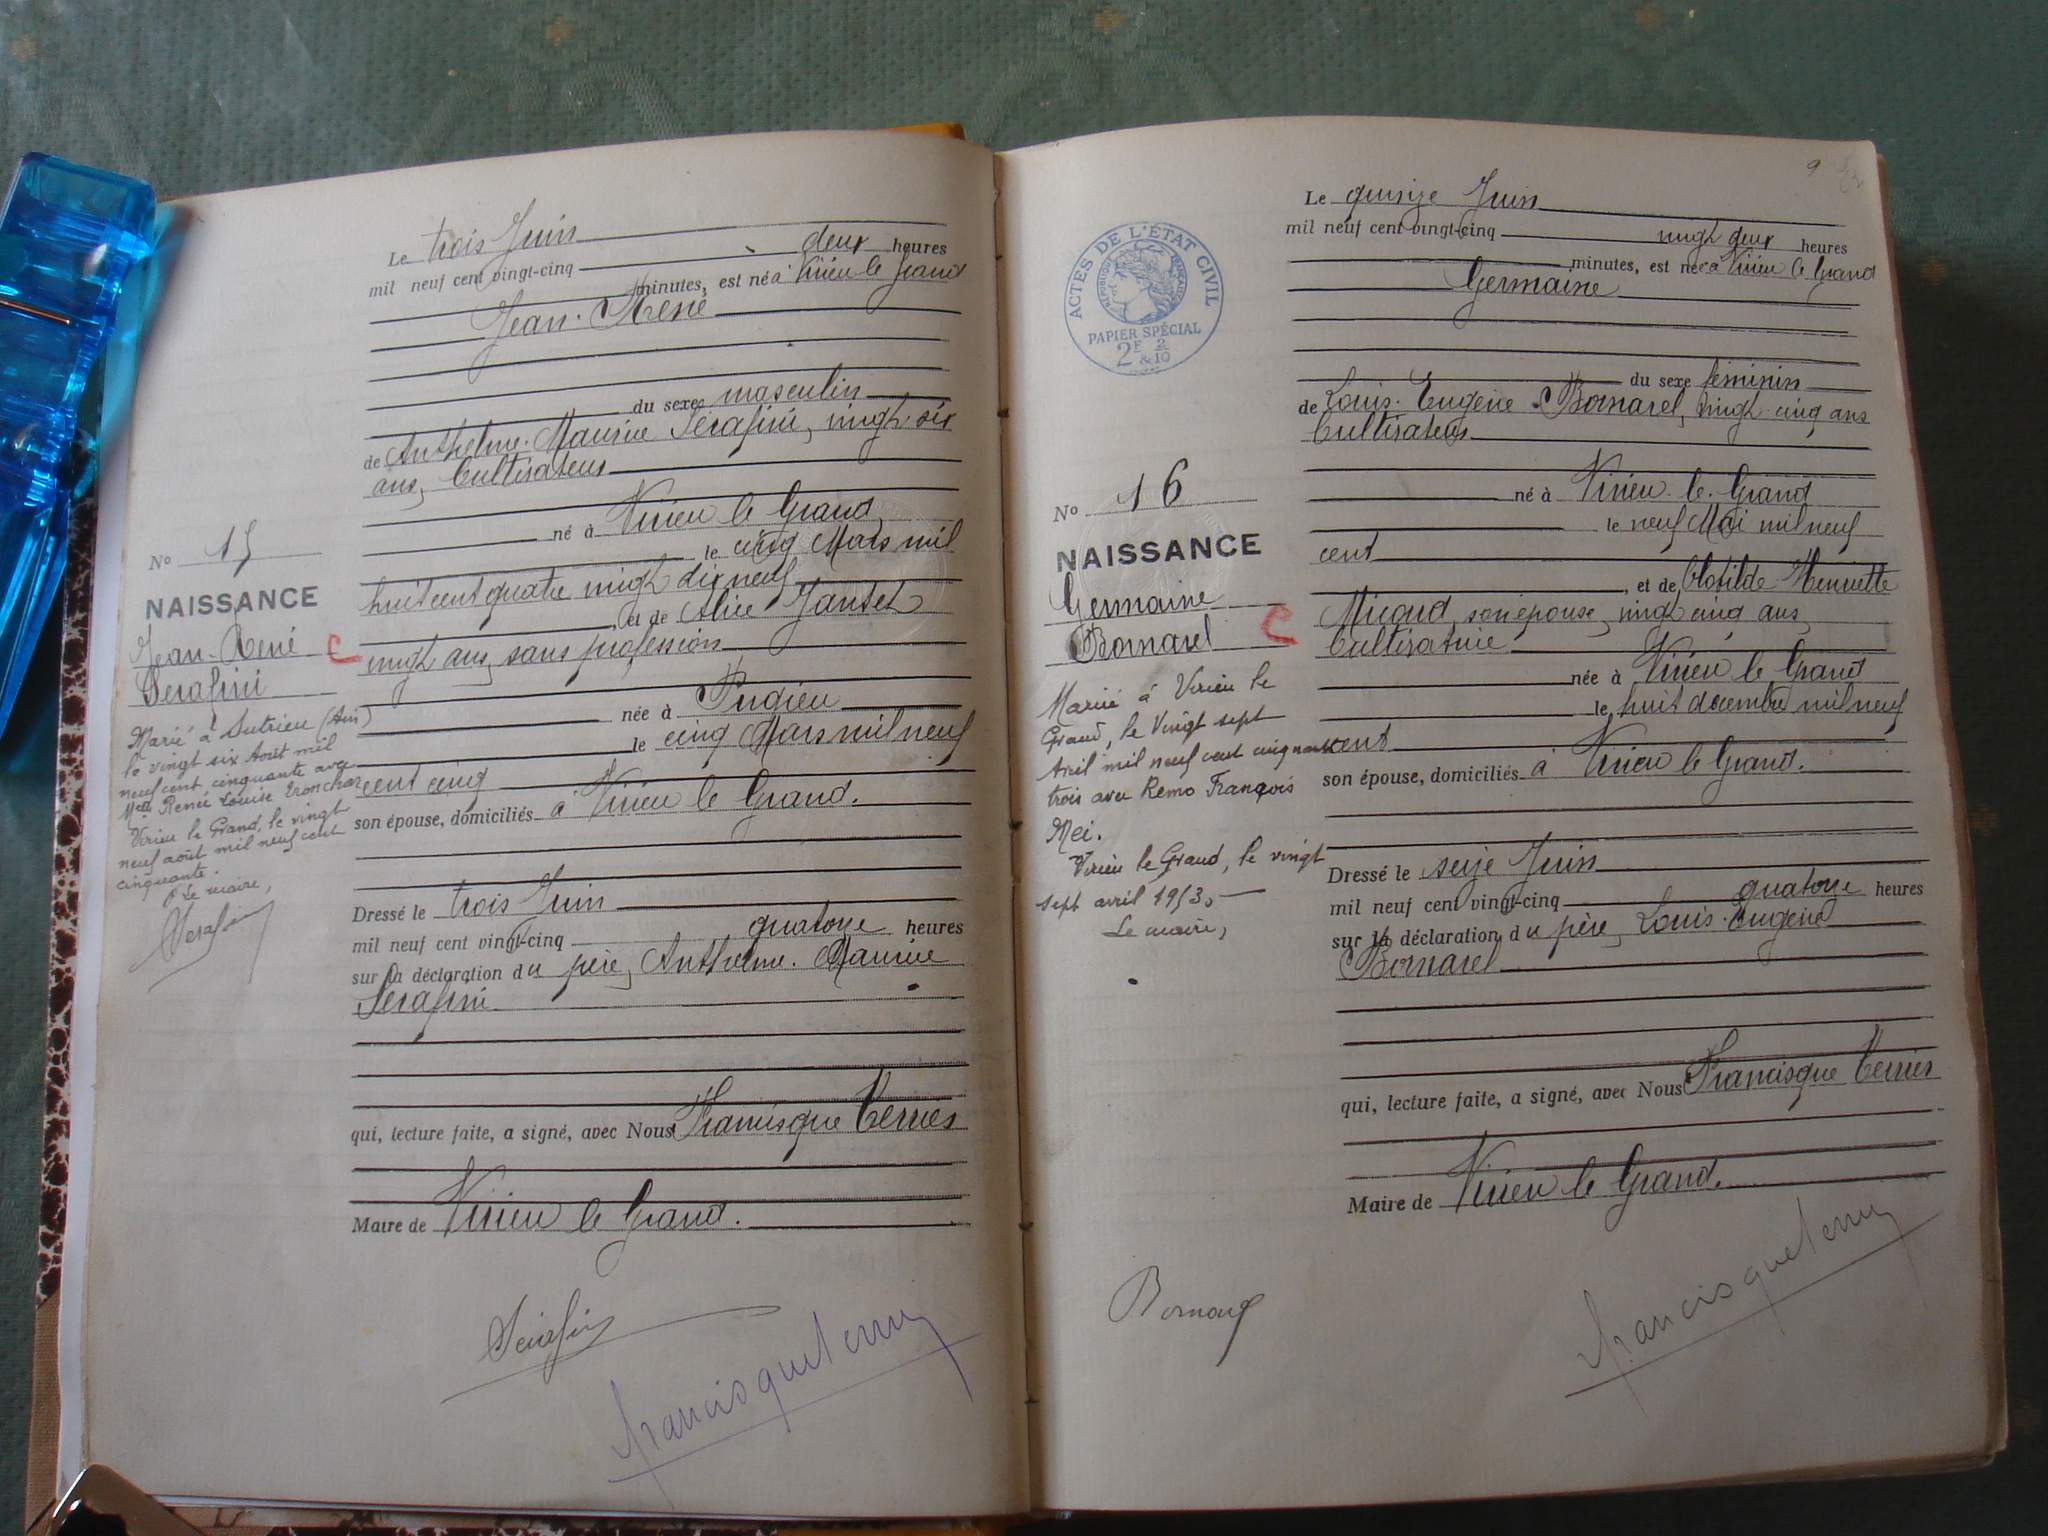 Le trois Juin
mil neuf cent vingt-cinq deux heures
minutes, est né à Virieu le Grand
Jean-René
du sexe masculin
de Anthelme-Maurice Serafini, vingt-six
ans, Cultivateur
né à Virieu le Grand
le cinq Mars mil
huit cent quatre vingt dix neuf
, et de Alice Jantet
vingt ans, sans profession
née à Pugieu
le cinq Mars mil neuf
cent cinq
son épouse, domiciliés à Virieu le Grand.
Dressé le trois Juin
mil neuf cent vingt-cinq quatorze heures
sur la déclaration du père, Anthelme-Maurice
Serafini
qui, lecture faite, a signé, avec Nous Francisque Terrier
Maire de Virieu le Grand.
Serafini
Francisque Terrier
No 15
NAISSANCE
Jean-René C
Serafini
Marié à Sutrieu (Ain)
le vingt six Août mil
neuf cent cinquante avec
Renée Louise
Virieu le Grand, le vingt
neuf août mil neuf cent
cinquante.
Le maire,
Serafini
9
Le quinze Juin
mil neuf cent vingt-cinq vingt deux heures
minutes, est née à Virieu le Grand
Germaine
du sexe féminin
de Louis-Eugène Bornarel, vingt-cinq ans
Cultivateur
né à Virieu-le-Grand
le neuf Mai mil neuf
cent
, et de Clotilde-Henriette
Micoud, son épouse, vingt cinq ans,
Cultivatrice
née à Virieu le Grand
le huit décembre mil neuf
cent
son épouse, domiciliés à Virieu le Grand.
Dressé le seize Juin
mil neuf cent vingt-cinq quatorze heures
sur la déclaration du père, Louis-Eugène
Bornarel
qui, lecture faite, a signé, avec Nous Francisque Terrier
Maire de Virieu le Grand.
Bornarel
Francisque Terrier
ACTES DE L'ÉTAT CIVIL
RÉPUBLIQUE FRANÇAISE
PAPIER SPÉCIAL
2F & 2/10
No 16
NAISSANCE
Germaine
Bornarel C
Mariée à Virieu le
Grand, le Vingt sept
Avril mil neuf cent cinquante
trois avec Remo François
Mei.
Virieu le Grand, le vingt
sept avril 1953.
Le maire,